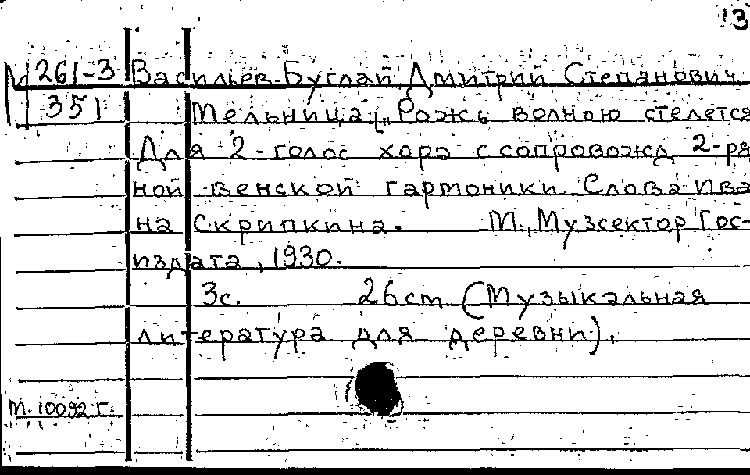 13
М 261-3 Васильев-Буглай, Дмитрий Степанович
351 Мельница („Рожь волною стелется
Для 2-голос хора с сопровожд 2-ря
ной венской гармоники Слова Ива
на Скрипкина. М., Музсектор Гос-
издата, 1930.
3с. 26см (Музыкальная
литература для деревни).
М. 10092 г.